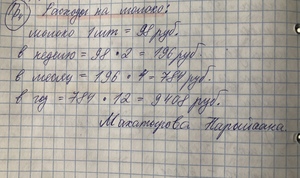 Расходы на молоко:
молоко 1 шт = 98 руб.
в неделю = 98 • 2 = 196 руб.
в месяц = 196 • 4 = 784 руб.
в год = 784 • 12 = 9408 руб.